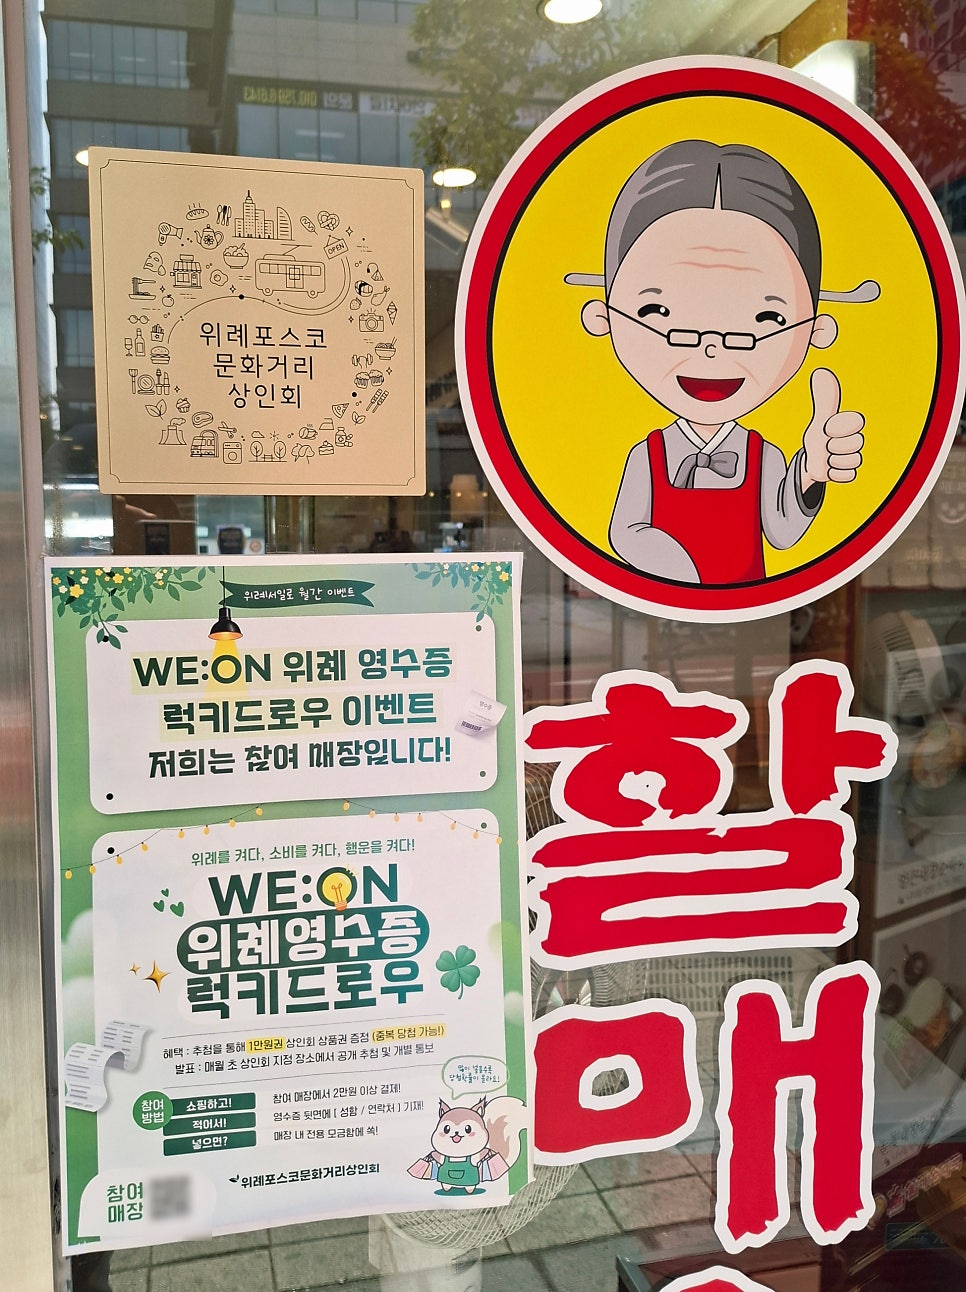 위례포스코
문화거리
상인회
OPEN
위례서일로 월간 이벤트
WE:ON 위례 영수증
럭키드로우 이벤트
저희는 참여 매장입니다!
영수증
위례를 켜다, 소비를 켜다, 행운을 켜다!
WE:ON
위례영수증
럭키드로우
혜택 : 추첨을 통해 1만원권 상인회 상품권 증정 (중복 당첨 가능!)
발표 : 매월 초 상인회 지정 장소에서 공개 추첨 및 개별 통보
많이 넣을수록
당첨확률이 올라요!
참여
방법
쇼핑하고! 참여 매장에서 2만원 이상 결제!
적어서! 영수증 뒷면에 [ 성함 / 연락처 ] 기재!
넣으면? 매장 내 전용 모금함에 쏙!
위례포스코문화거리상인회
참여
매장
할
매